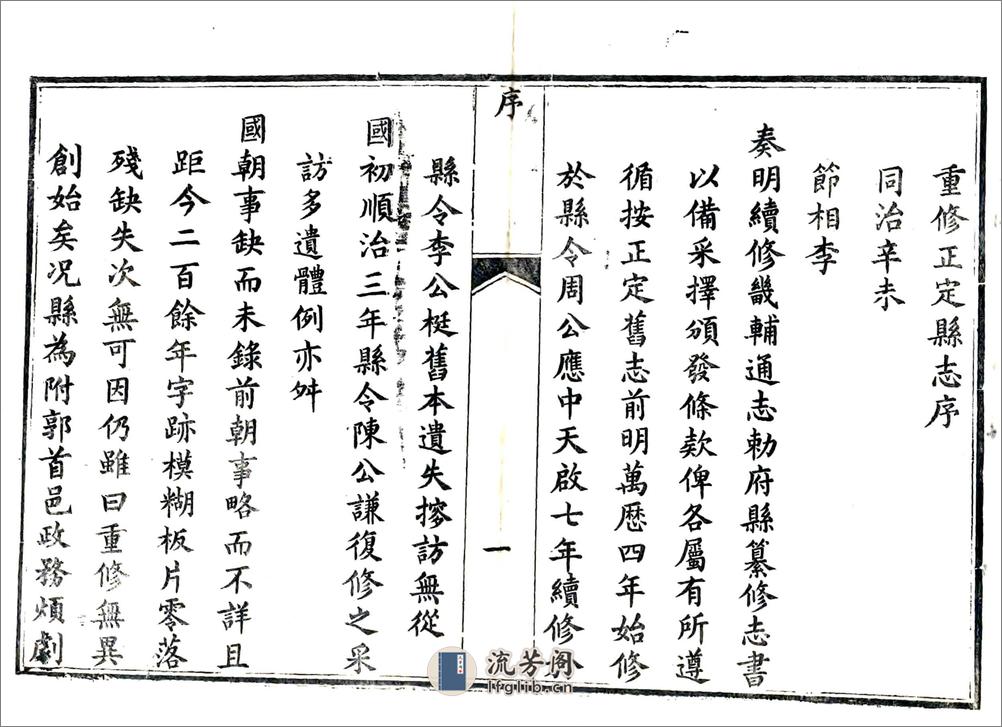 重修正定縣志序
同治辛未
節相李
奏明續修畿輔通志勅府縣纂修志書
以備采擇頒發條款俾各屬有所遵
循按正定舊志前明萬歷四年始修
於縣令周公應中天啟七年續修
序
一
縣令李公梃舊本遺失搜訪無從
國初順治三年縣令陳公謙復修之采
訪多遺體例亦舛
國朝事缺而未錄前朝事略而不詳且
距今二百餘年字跡模糊板片零落
殘缺失次無可因仍雖曰重修無異
創始矣况縣為附郭首邑政務煩劇
流芳阁
lfglib.cn